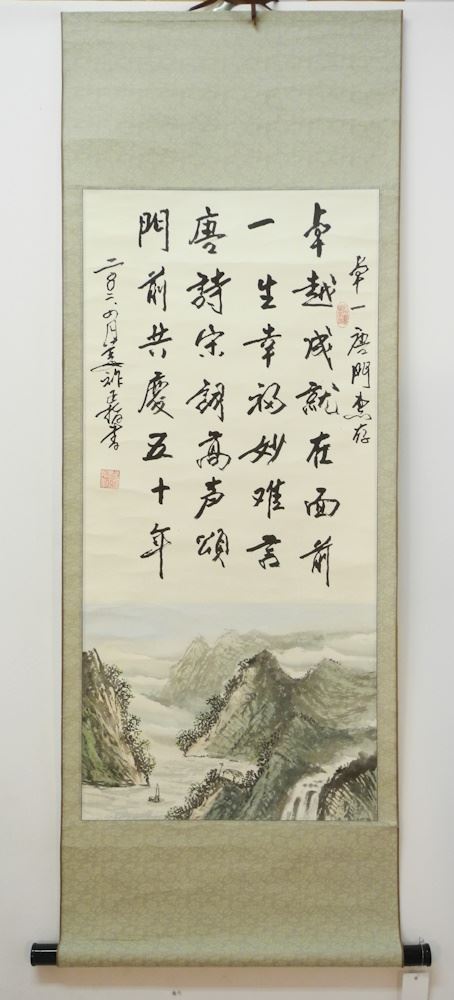 卓一唐門惠存
卓越成就在面前
一生幸福妙难言
唐詩宋詞高声頌
門前共慶五十年
二〇〇六年四月
书